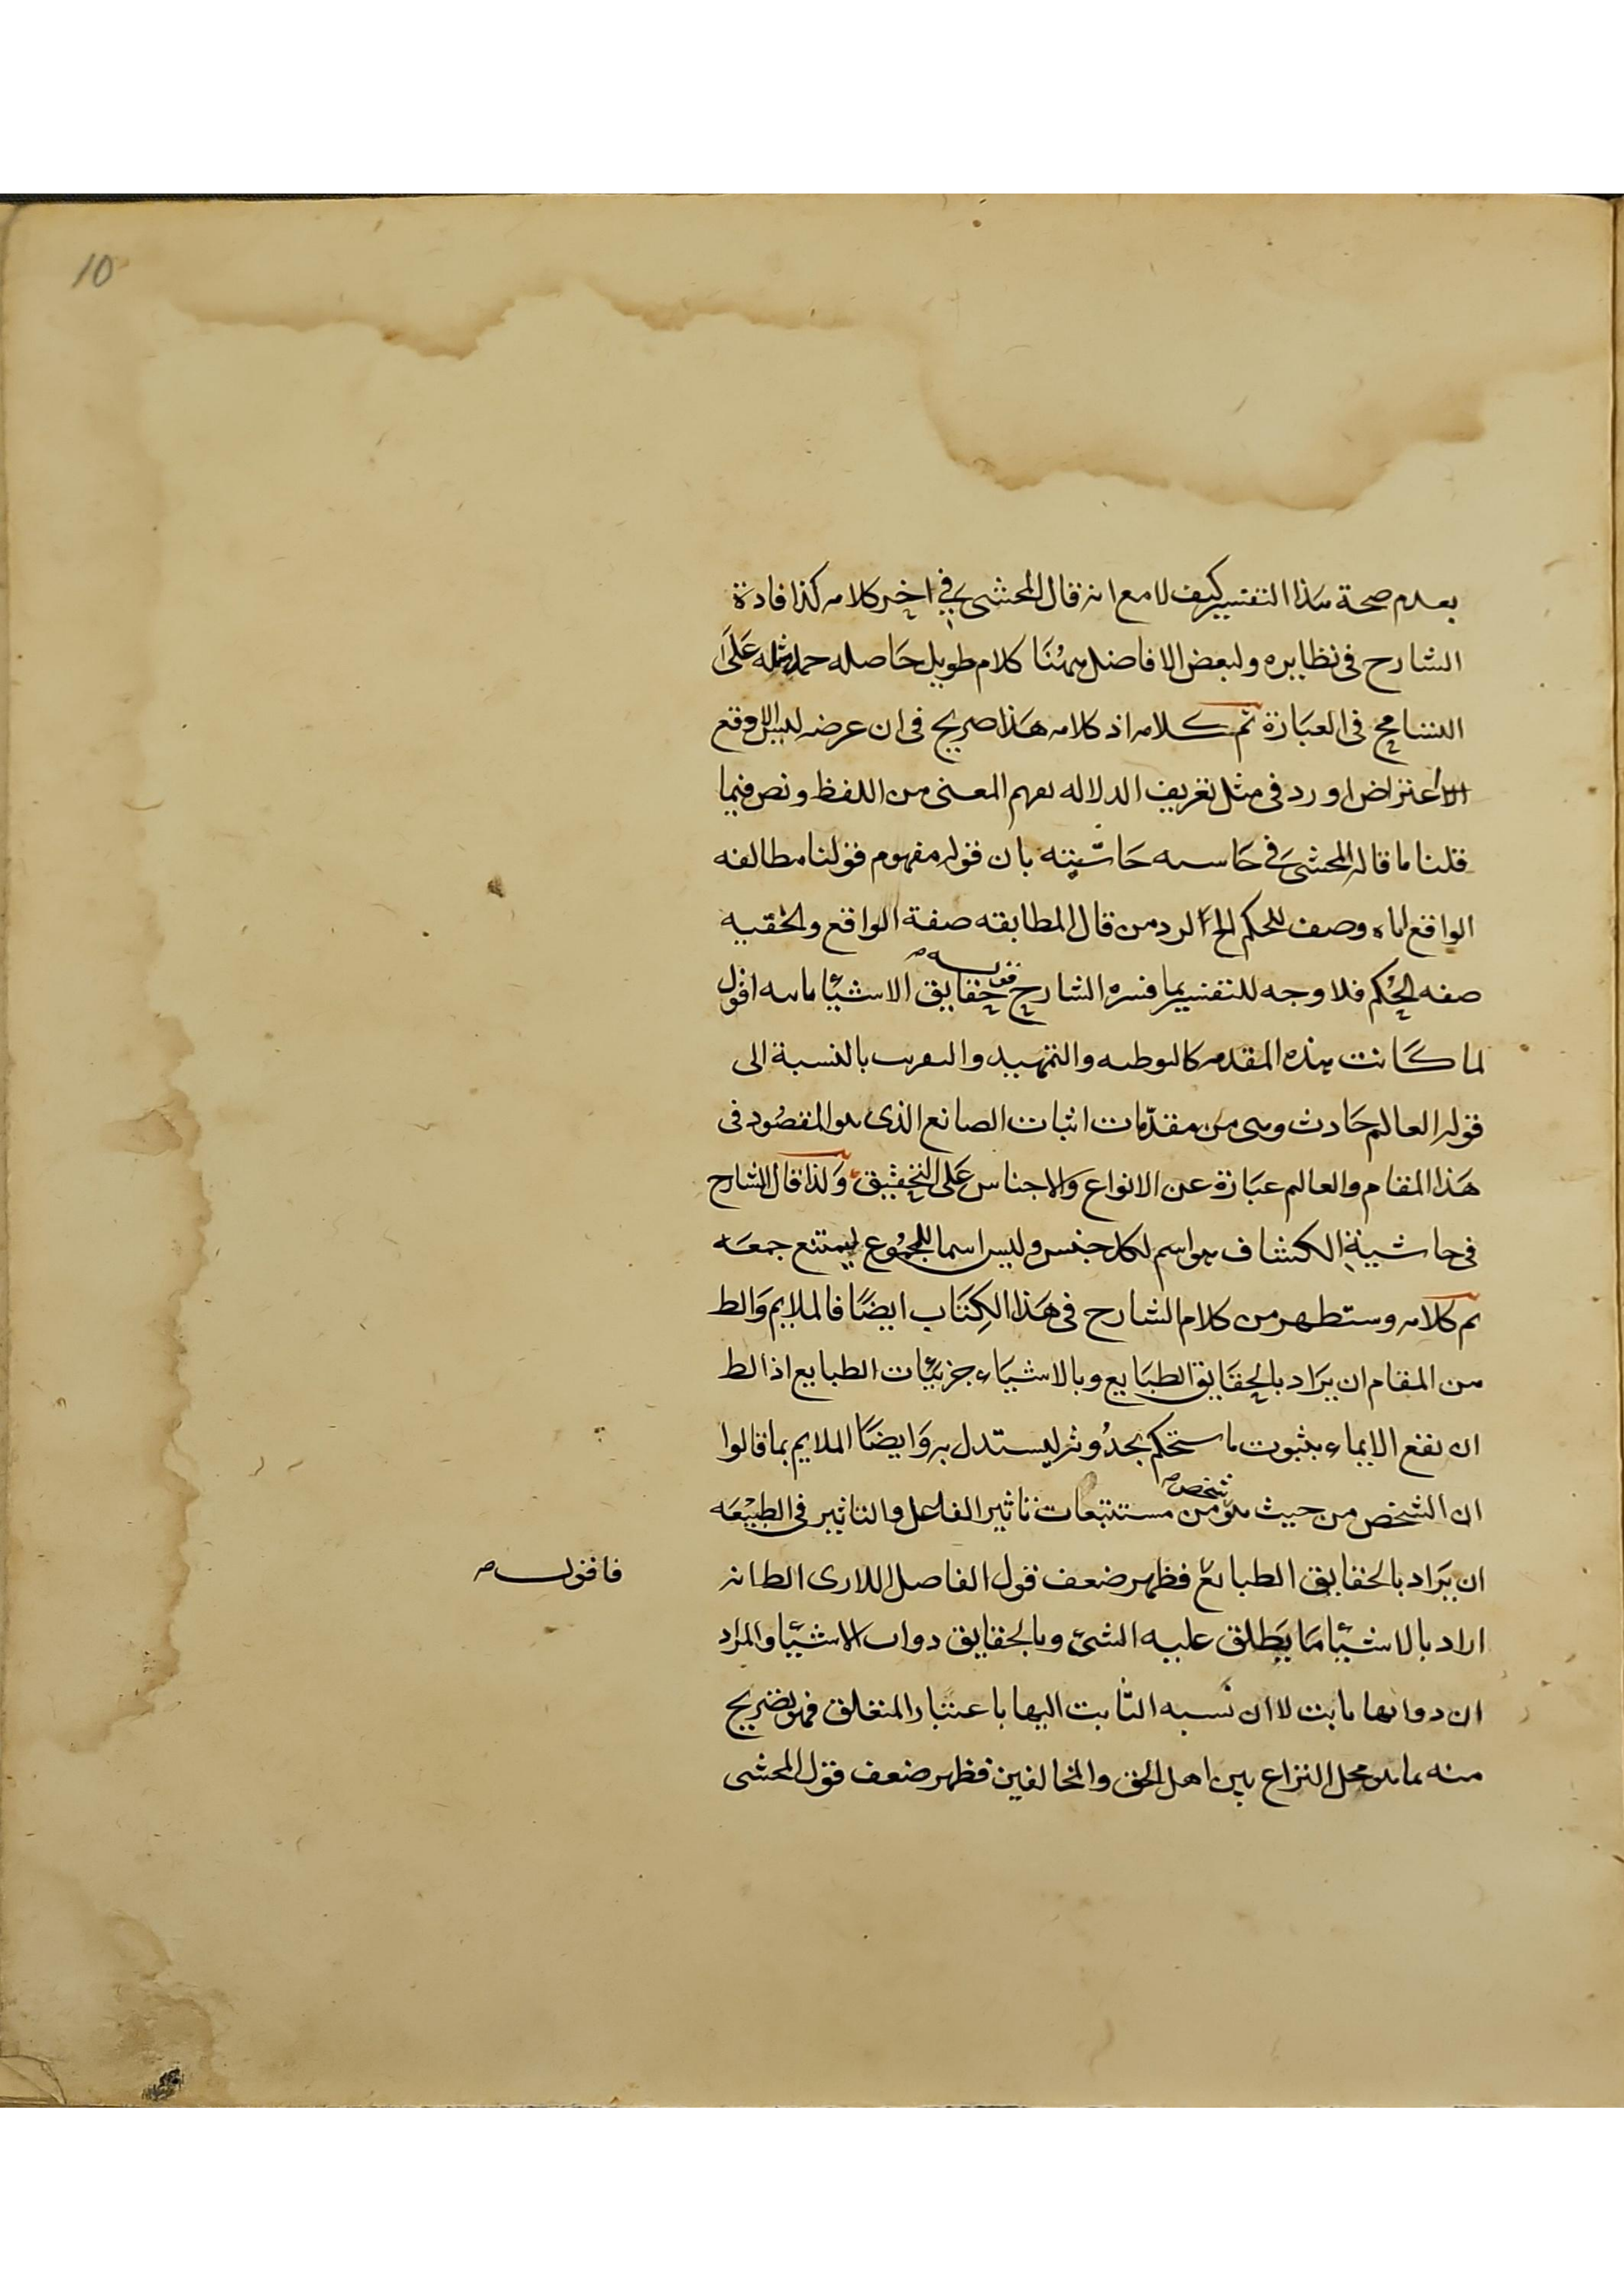 10
بعدم صحة هذا التفسير كيف لا مع انه قال المحشى فى اخير كلامه كذا فادة
الشارح فى نظايره ولبعض الافاضل ههنا كلام طويل حاصله حمل مثله على
التسامح فى العبارة تم كلامه اذ كلامه هذا صريح فى ان عرضه
الاعتراض اورد فى مثل تعريف الدلاله بفهم المعنى من اللفظ ونص فيما
قلنا ما قاله المحشى فى حاشيته بان قوله مفهوم قولنا مطابقه
الواقع اياه وصف للحكم الخ الرد من قال المطابقه صفة الواقع والحقيه
صفه الحكم فلا وجه للتفسير بما فسره الشارح قوله حقايق الاشيا ثابته اقول
لما كانت هذه المقدمه كالتوطيه والتمهيد والتقريب بالنسبة الى
قوله العالم حادث وهى من مقدمات اثبات الصانع الذى هو المقصود فى
هذا المقام والعالم عبارة عن الانواع والاجناس على التحقيق ولذا قال الشارح
فى حاشية الكشاف هو اسم لكل جنس وليس اسما للمجموع ليمتنع جمعه
تم كلامه وستظهر من كلام الشارح فى هذا الكتاب ايضا فالملايم والظ
من المقام ان يراد بالحقايق الطبايع وبالاشياء جزئيات الطبايع اذ الظ
ان يقع الايماء بثبوت ما ستحكم بحدوثه ليستدل به وايضا الملايم بما قالوا
ان الشخص من حيث هو شخص من مستتبعات تاثير الفاعل والتاثير فى الطبيعه
ان يراد بالحقايق الطبائع فظهر ضعف قول الفاضل اللارى الظ انه
فاقول
اراد بالاشيا ما يطلق عليه الشئ وبالحقايق ذوات الاشيا والمراد
ان ذواتها ثابت لا ان نسبه الثابت اليها باعتبار المتعلق فهو تصريح
منه بما هو محل النزاع بين اهل الحق والمخالفين فظهر ضعف قول المحشى